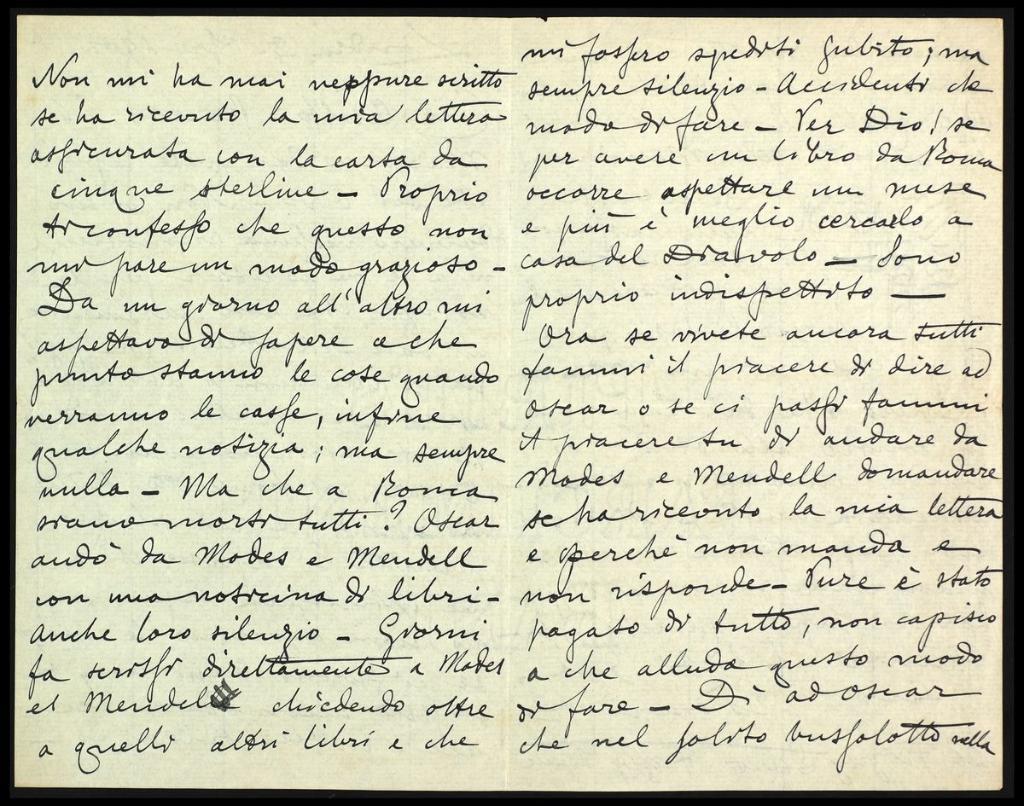 Non mi ha mai neppure scritto
se ha ricevuto la mia lettera
assicurata con la carta da
cinque sterline – Proprio
ti confesso che questo non
mi pare un modo grazioso –
Da un giorno all'altro mi
aspettavo di sapere a che
punto stanno le cose quando
verranno le casse, infine
qualche notizia; ma sempre
nulla – Ma che a Roma
siano morti tutti? Oscar
andò da Modes e Mendell
con una noticina di libri –
anche loro silenzio – Giorni
fa scrissi direttamente a Modes
et Mendell chiedendo oltre
a quelli altri libri e che
mi fossero spediti subito; ma
sempre silenzio – Accidenti che
modo di fare – Per Dio! se
per avere un libro da Roma
occorre aspettare un mese
e più è meglio cercarlo a
casa del Diavolo – Sono
proprio indispettito –
Ora se vivete ancora tutti
fammi il piacere di dire ad
Oscar o se ci passi fammi
il piacere tu di andare da
Modes e Mendell domandare
se ha ricevuto la mia lettera
e perchè non manda e
non risponde – Pure è stato
pagato di tutto, non capisco
a che alluda questo modo
di fare – Di ad Oscar
che nel solito bussolotto nella